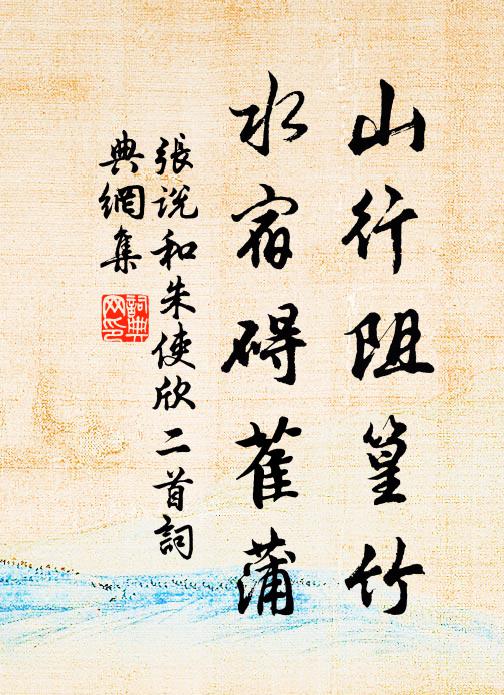 山行阻篁竹
水宿碍萑蒲
張説和朱使欣二首詞
典網集
詞典網印